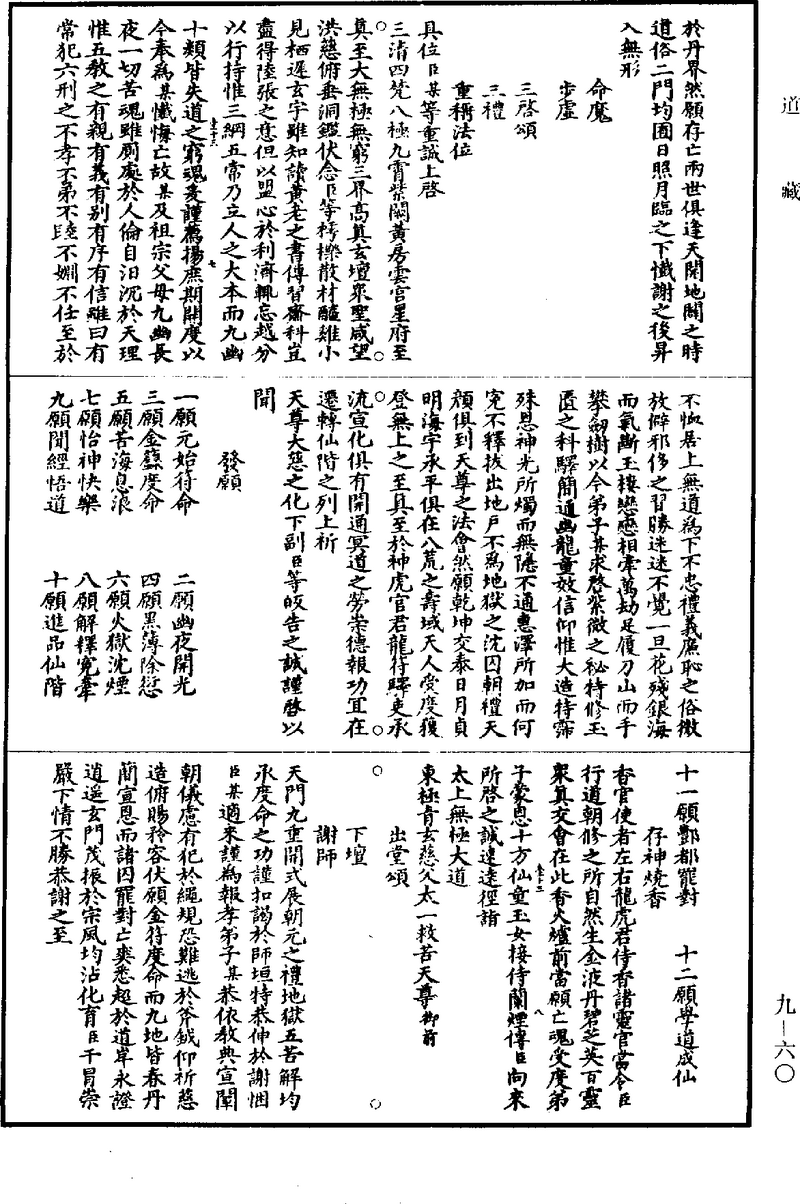 道藏
於丹界然願存亡兩世俱逢天開地闢之時
道俗二門均囿日照月臨之下懺謝之後昇
入無形
命魔
步虛
三啓頌
三禮
重稱法位
具位臣某等重誠上啓
三清四梵八極九霄紫闕黃房雲宮星府至
真至大無極無窮三界高真玄壇衆聖咸望
洪慈俯垂洞鑑伏念臣等樗櫟散材醯雞小
見栖遲玄宇雖知讀黃老之書傳習齋科豈
盡得陸張之意但以盟心於利濟輒忘越分
以行持惟三綱五常乃立人之大本而九幽
十類皆失道之窮魂爰謹薦揚庶期開度以
今奉為某懺悔亡故某及祖宗父母九幽長
夜一切苦魂雖廁處於人倫自汩沉於天理
惟五教之有親有義有別有序有信雖曰有
常犯六刑之不孝不弟不睦不婣不任至於
不恤居上無道為下不忠禮義廉恥之俗微
放僻邪侈之習勝迷迷不覺一旦花殘銀海
而氣斷玉樓戀戀相牽萬劫足履刀山而手
攀劒樹以今弟子某求啓紫微之秘特修玉
匱之科驛簡通幽龍童效信仰惟大造特霈
殊恩神光所燭而無隱不通惠澤所加而何
寃不釋拔出地戶不為地獄之沈囚朝禮天
顏俱到天尊之法會然願乾坤交泰日月貞
明海宇承平俱在八荒之壽域天人受度獲
登無上之至真至於神虎官君龍符驛吏承
流宣化俱有開通冥道之勞崇德報功宜在
遷轉仙階之列上祈
天尊大慈之化下副臣等皈告之誠謹啓以
聞
發願
一願元始符命　二願幽夜開光
三願金籙度命　四願黑簿除愆
五願苦海息浪　六願火獄沈煙
七願怡神快樂　八願解釋寃牽
九願聞經悟道　十願進品仙階
十一願酆都罷對　十二願學道成仙
存神燒香
香官使者左右龍虎君侍香諸靈官當令臣
行道朝修之所自然生金液丹碧芝英百靈
衆真交會在此香火爐前當願亡魂受度弟
子蒙恩十方仙童玉女接侍蘭煙傳臣向來
所啓之誠速達徑詣
太上無極大道
東極青玄慈父太一救苦天尊御前
出堂頌
下壇
謝師
天門九重開式展朝元之禮地獄五苦解均
承度命之功謹扣謁於師垣特恭伸於謝悃
臣某適來謹為報孝弟子某恭依教典宣闡
朝儀慮有犯於繩規恐難逃於斧鉞仰祈慈
造俯賜矜容伏願金符度命而九地皆春丹
簡宣恩而諸囚罷對亡爽悉超於道岸永證
逍遥玄門茂振於宗風均沾化育臣干冒崇
嚴下情不勝恭謝之至
九—六〇